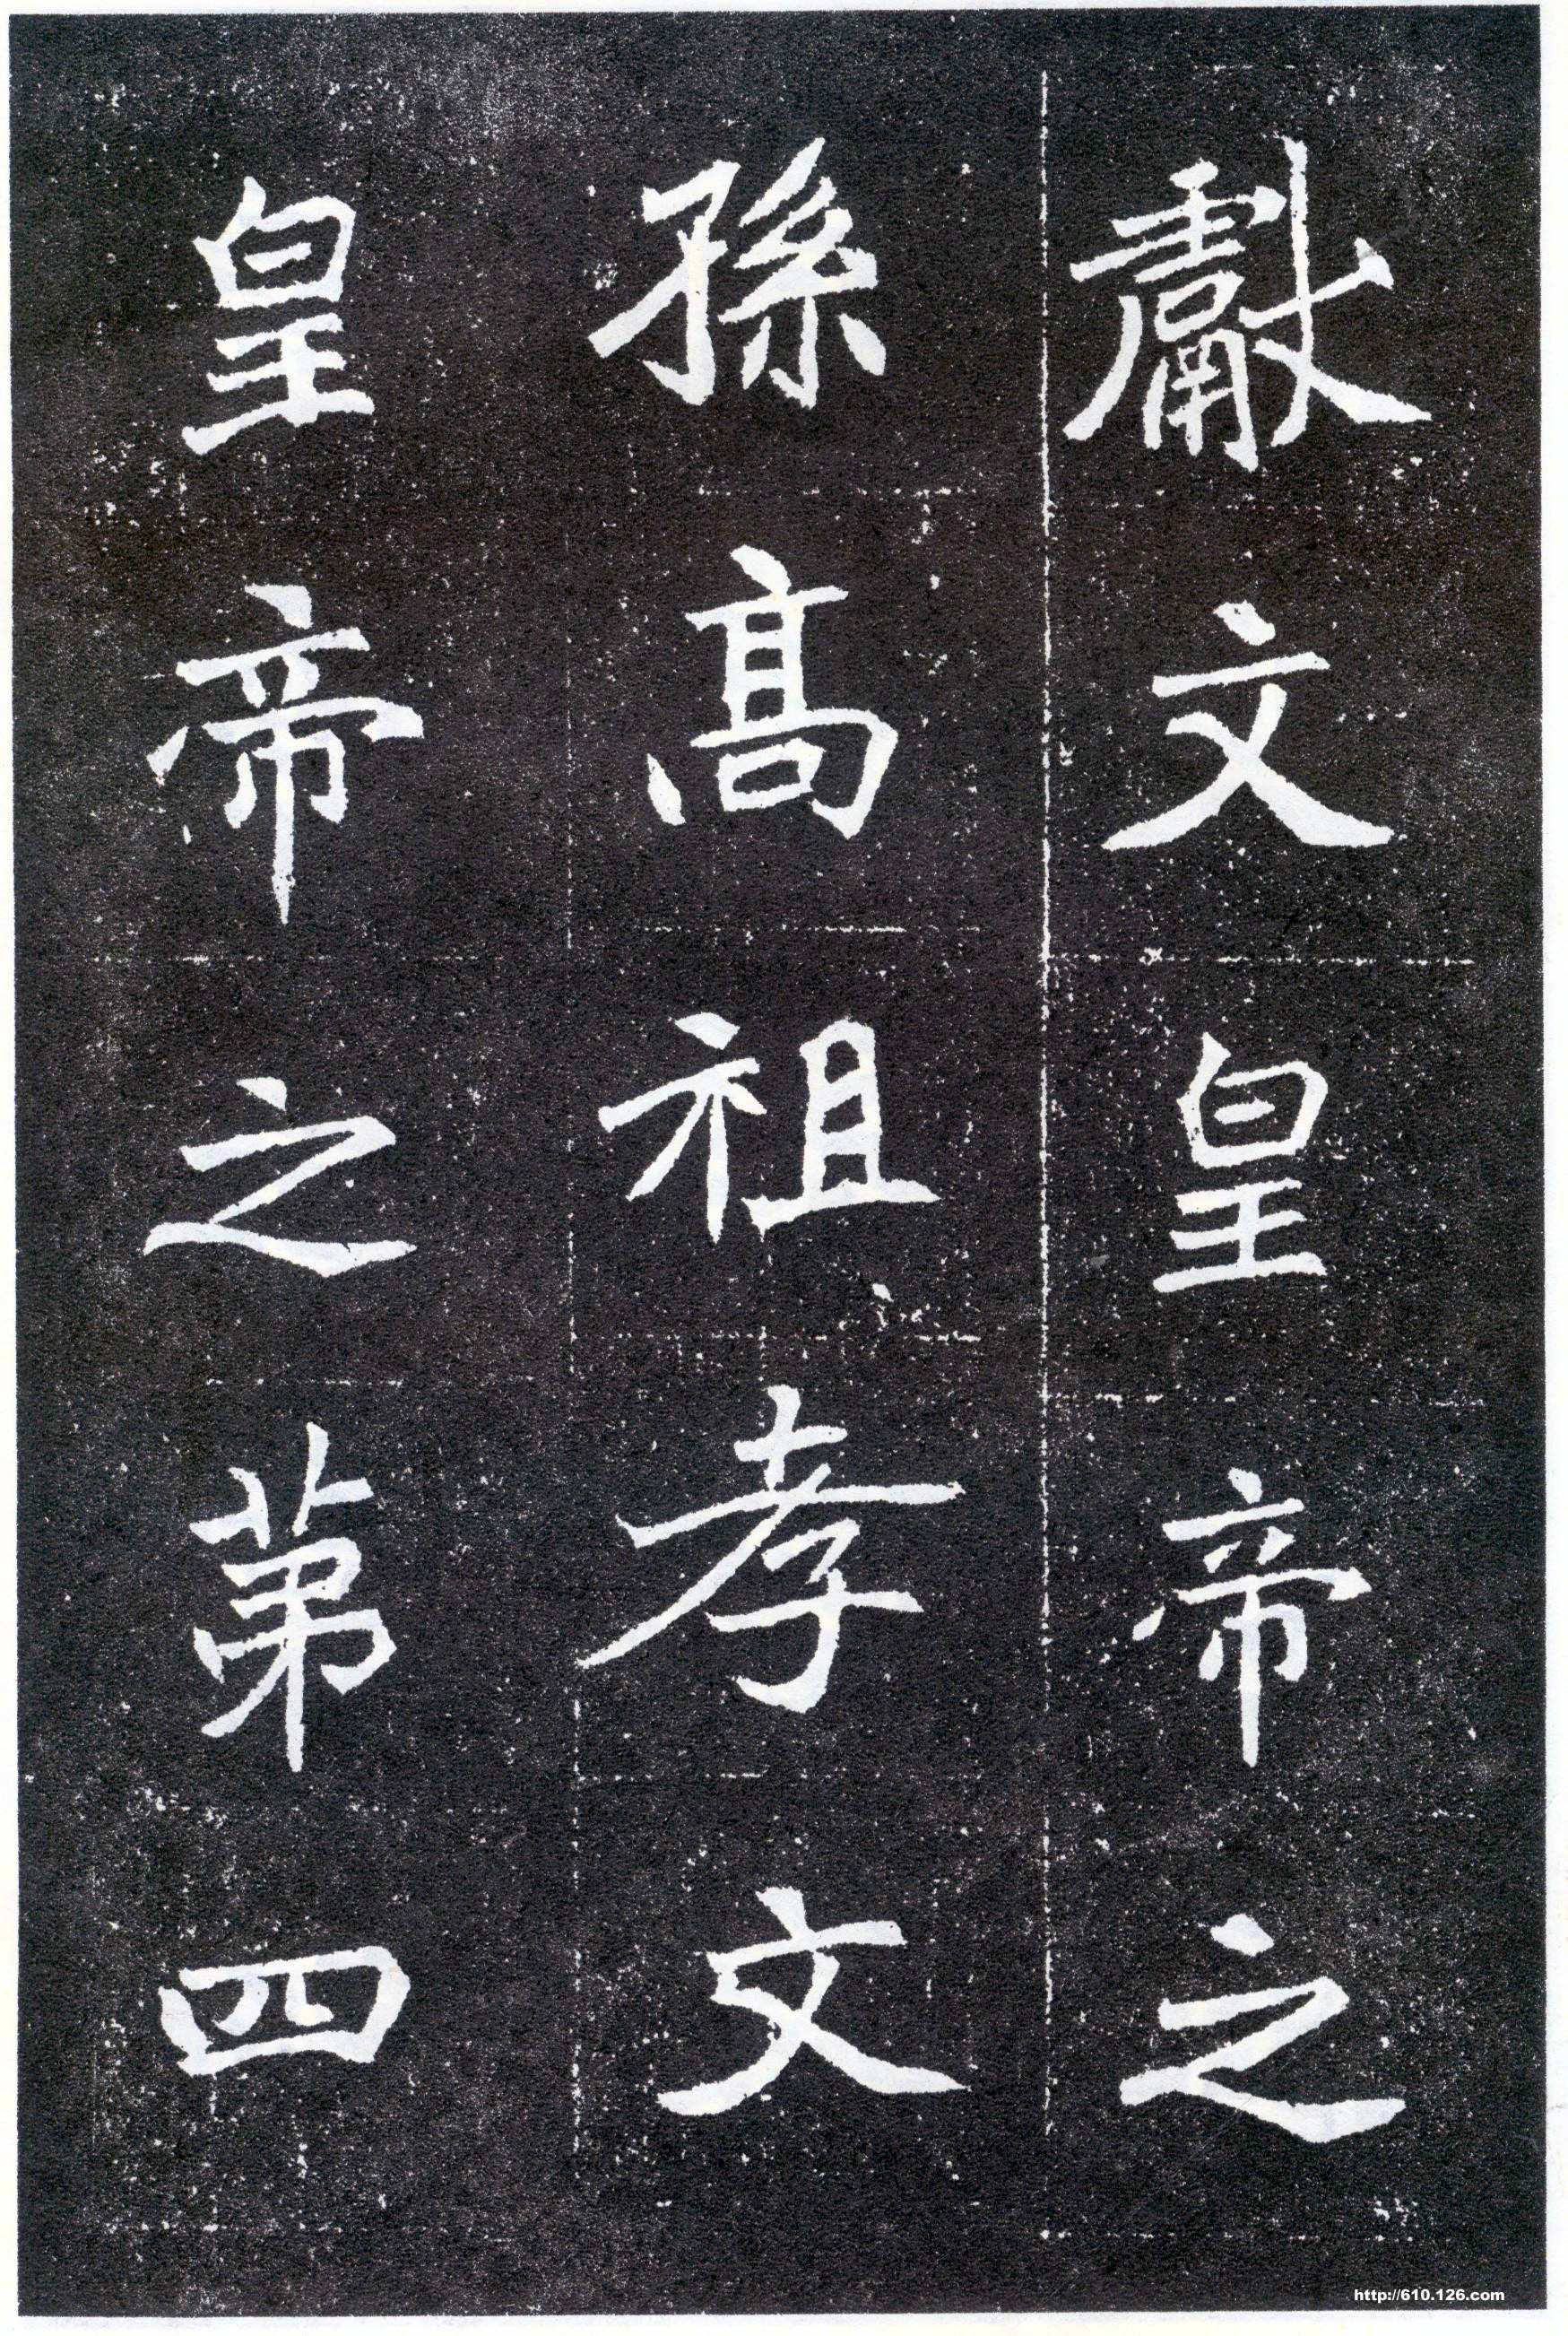 獻文皇帝之
孫高祖孝文
皇帝之第四
http://610.126.com